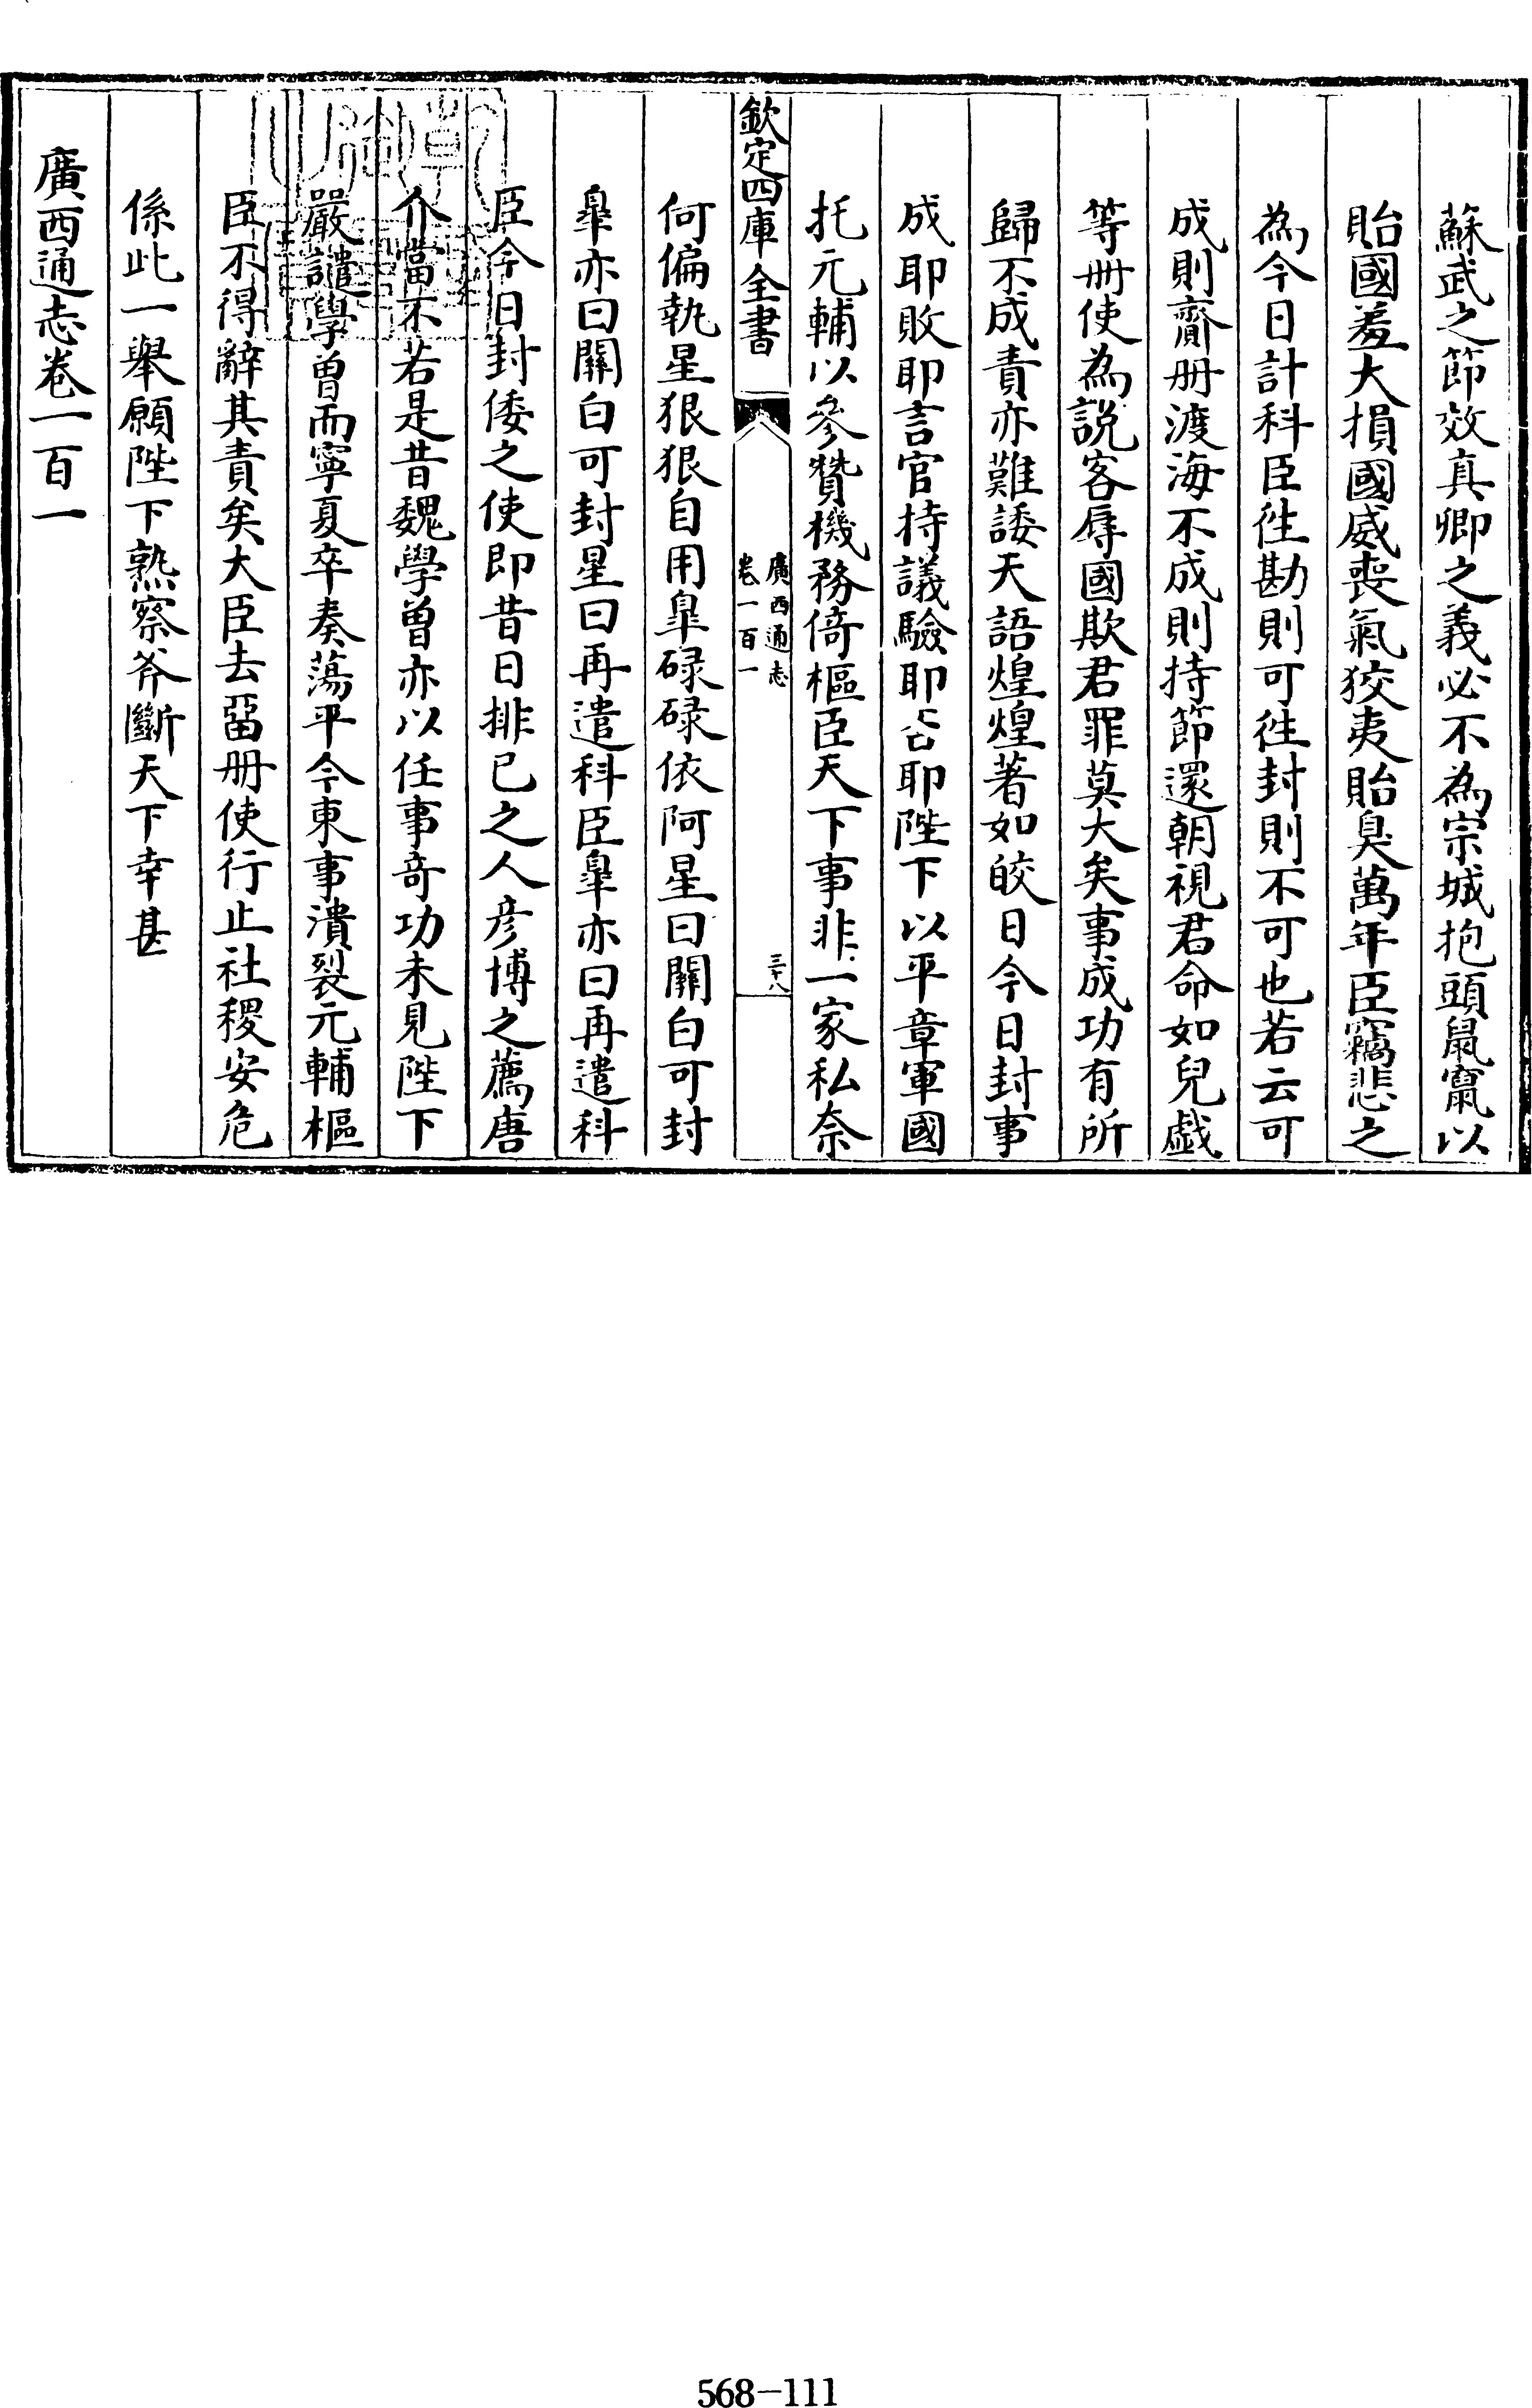 蘇武之節效真卿之義必不為宗城抱頭鼠竄以
貽國羞大損國威喪氣狡夷貽臭萬年臣竊悲之
為今日計科臣徃勘則可徃封則不可也若云可
成則齎册渡海不成則持節還朝視君命如兒戯
等册使為説客辱國欺君罪莫大矣事成功有所
歸不成責亦難諉天語煌煌著如皎日今日封事
成耶敗耶言官持議驗耶否耶陛下以平章軍國
托元輔以參贊機務倚樞臣天下事非一家私奈
欽定四庫全書
廣西通志
卷一百一
三十八
何偏執星狠狠自用臯碌碌依阿星曰關白可封
臯亦曰關白可封星曰再遣科臣臯亦曰再遣科
臣今日封倭之使即昔日排已之人彦博之薦唐
介當不若是昔魏學曽亦以任事竒功未見陛下
嚴譴學曽而寧夏卒奏蕩平今東事潰裂元輔樞
臣不得辭其責矣大臣去留册使行止社稷安危
係此一舉願陛下熟察斧斷天下幸甚
廣西通志卷一百一
568—111